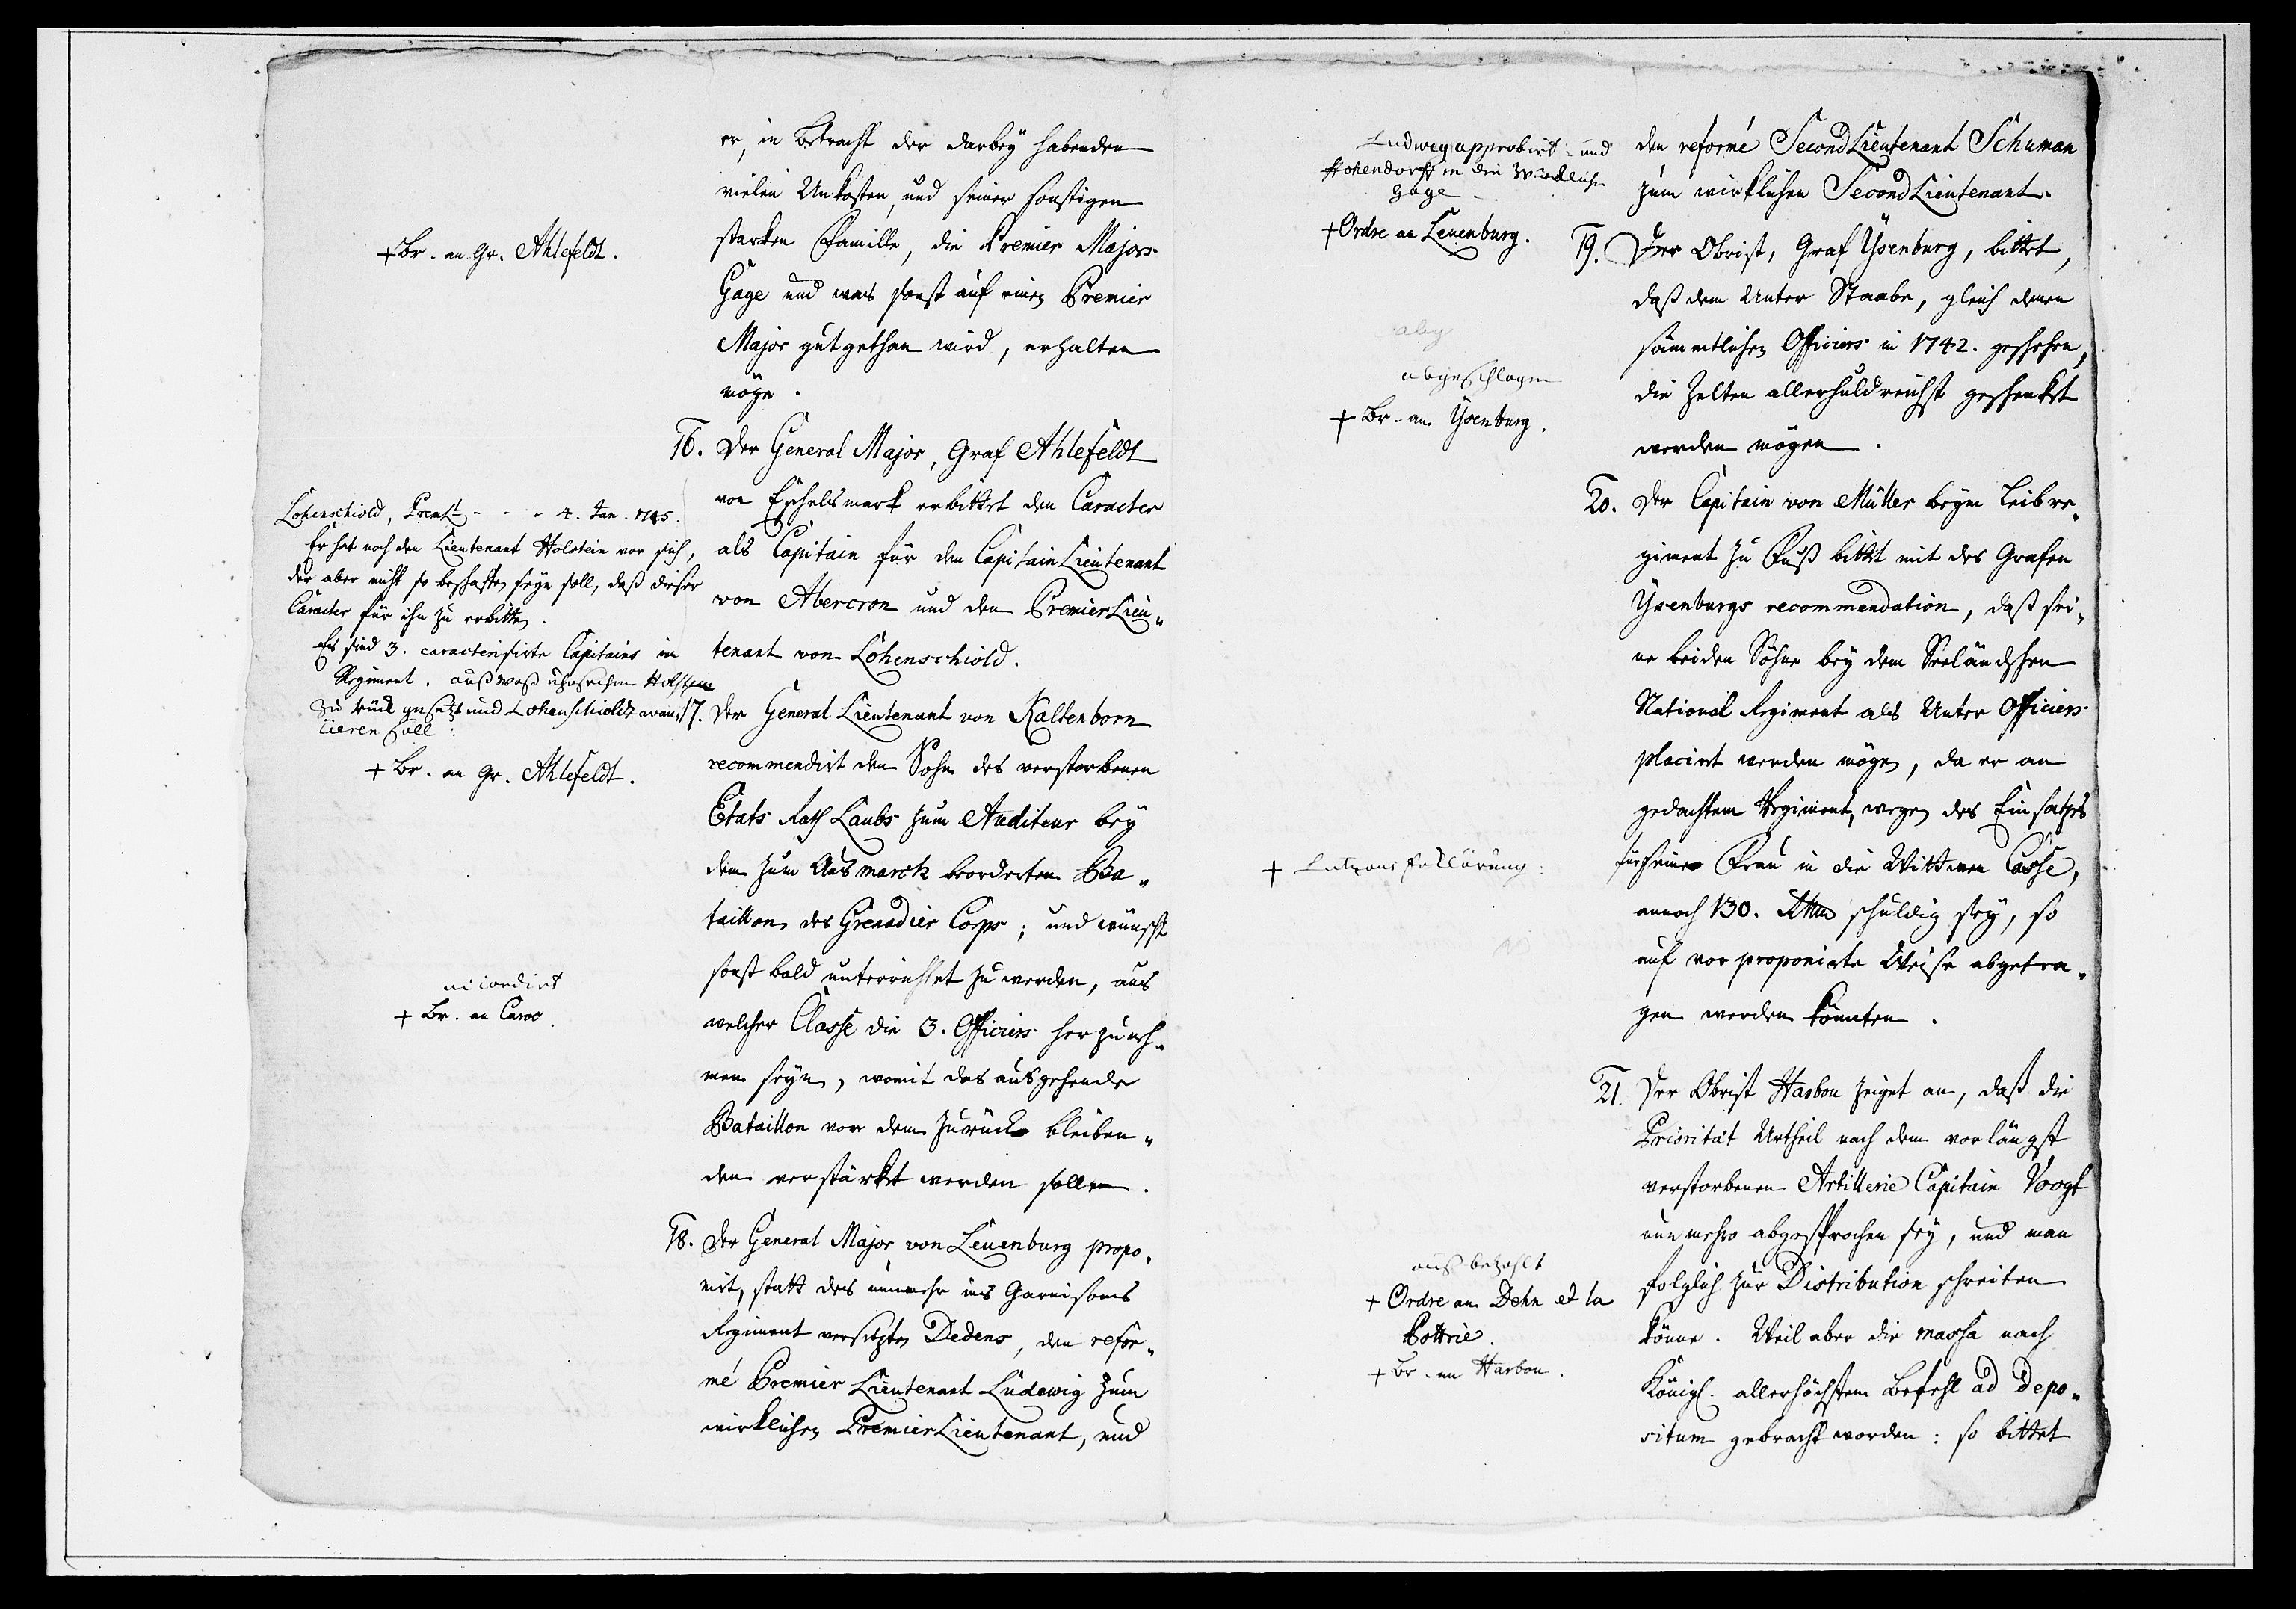 er, in Betracht der darbey habenden
vielen Unkosten, und seiner sonstigen
starken Famille, die Premier Majors
Gage und was sonst auf einen Premier
Major gutgethan wird, erhalten
möge.
+ Br. an Gr. Ahlefeldt.
16. Der General Major, Graf Ahlefeldt
von Eschelsmark erbittet den Caracter
als Capitain für den CapitainLieutenant
von Abercron und den PremierLieu„
tenant von Löhenschiold.
Löhenschiold, Premt. - - - 4. Jan. 1745.
Er hat noch den Lieutenant Holstein vor sich,
der aber nicht so beschaffen seyn soll, daß dieser
Caracter für ihn zu erbitten.
Es sind 3. caracterisirte Capitains im
Regiment. auß waß uhrsachen Holstein
zu rück gesetzt und Lohenschiold avan¬
cieren soll:
+ Br. an Gr. Ahlefeldt.
17. Der General Lieutenant von Kaltenborn
recommendirt den Sohn des verstorbenen
Etats Rath Laubs zum Auditeur bey
dem zum Ausmarch beorderten Ba„
taillon des Grenadier Corps; und wünscht
sonst bald unterrichtet zu werden, aus
welcher Classe die 3. Officiers herzuneh„
men seyn, womit das ausgehende
Bataillon von dem zurück bleiben„
den verstärket werden sollen.
accordirt
+ Br. an Caroc.
18. Der General Major von Leuenburg propo„
nirt, statt des nunmehr ins Garnisons
Regiment versetzten Dedens, den refor„
mé Premier Lieutenant Ludewig zum
wirklichen PremierLieutenant, und
den reformé SecondLieutenant Schuman
zum wirklichen SecondLieutenant.
Ludwey approbirt und
Hohendorff in die Würcklich
gage
+ Ordre an Leuenburg.
19. Der Obrist, Graf Ysenburg, bittet,
daß dem Unter Staabe, gleich denen
sämmtlichen Officiers in 1742. geschehen,
die Zelten allerhuldreichst geschenket
werden mögen.
abgeschlagen
+ Br. an Ysenburg.
20. Der Capitain von Müller beym Leibre„
giment zu Fuß bittet mit des Grafen
Ysenburgs recommendation, daß sei„
ne beiden Söhne bey dem Seeländschen
National Regiment als Unter Officiers
placirt werden mögen, da er an
gedachtem Regiment, wegen des Einsatzes
für seine Frau in die Wittwen Casse,
annoch 130. Rthlr schuldig sey, so
auf vor proponirte Weise abgetra„
gen werden könnten.
+ Lutzaus Erklärung:
21. Der Obrist Harbou zeiget an, daß die
Priorität Urtheil nach dem vorlängst
verstorbenen Artillerie Capitain Voogt
nunmehro abgesprochen sey, und man
folglich zur Distribution schreiten
könne. Weil aber die massa nach
Königl. allerhöchstem Befehl ad depo„
situm gebracht worden: so bittet
auß bezahlt
+ Ordre an Dehn et la
Pottrie.
+ Br. an Harbou.